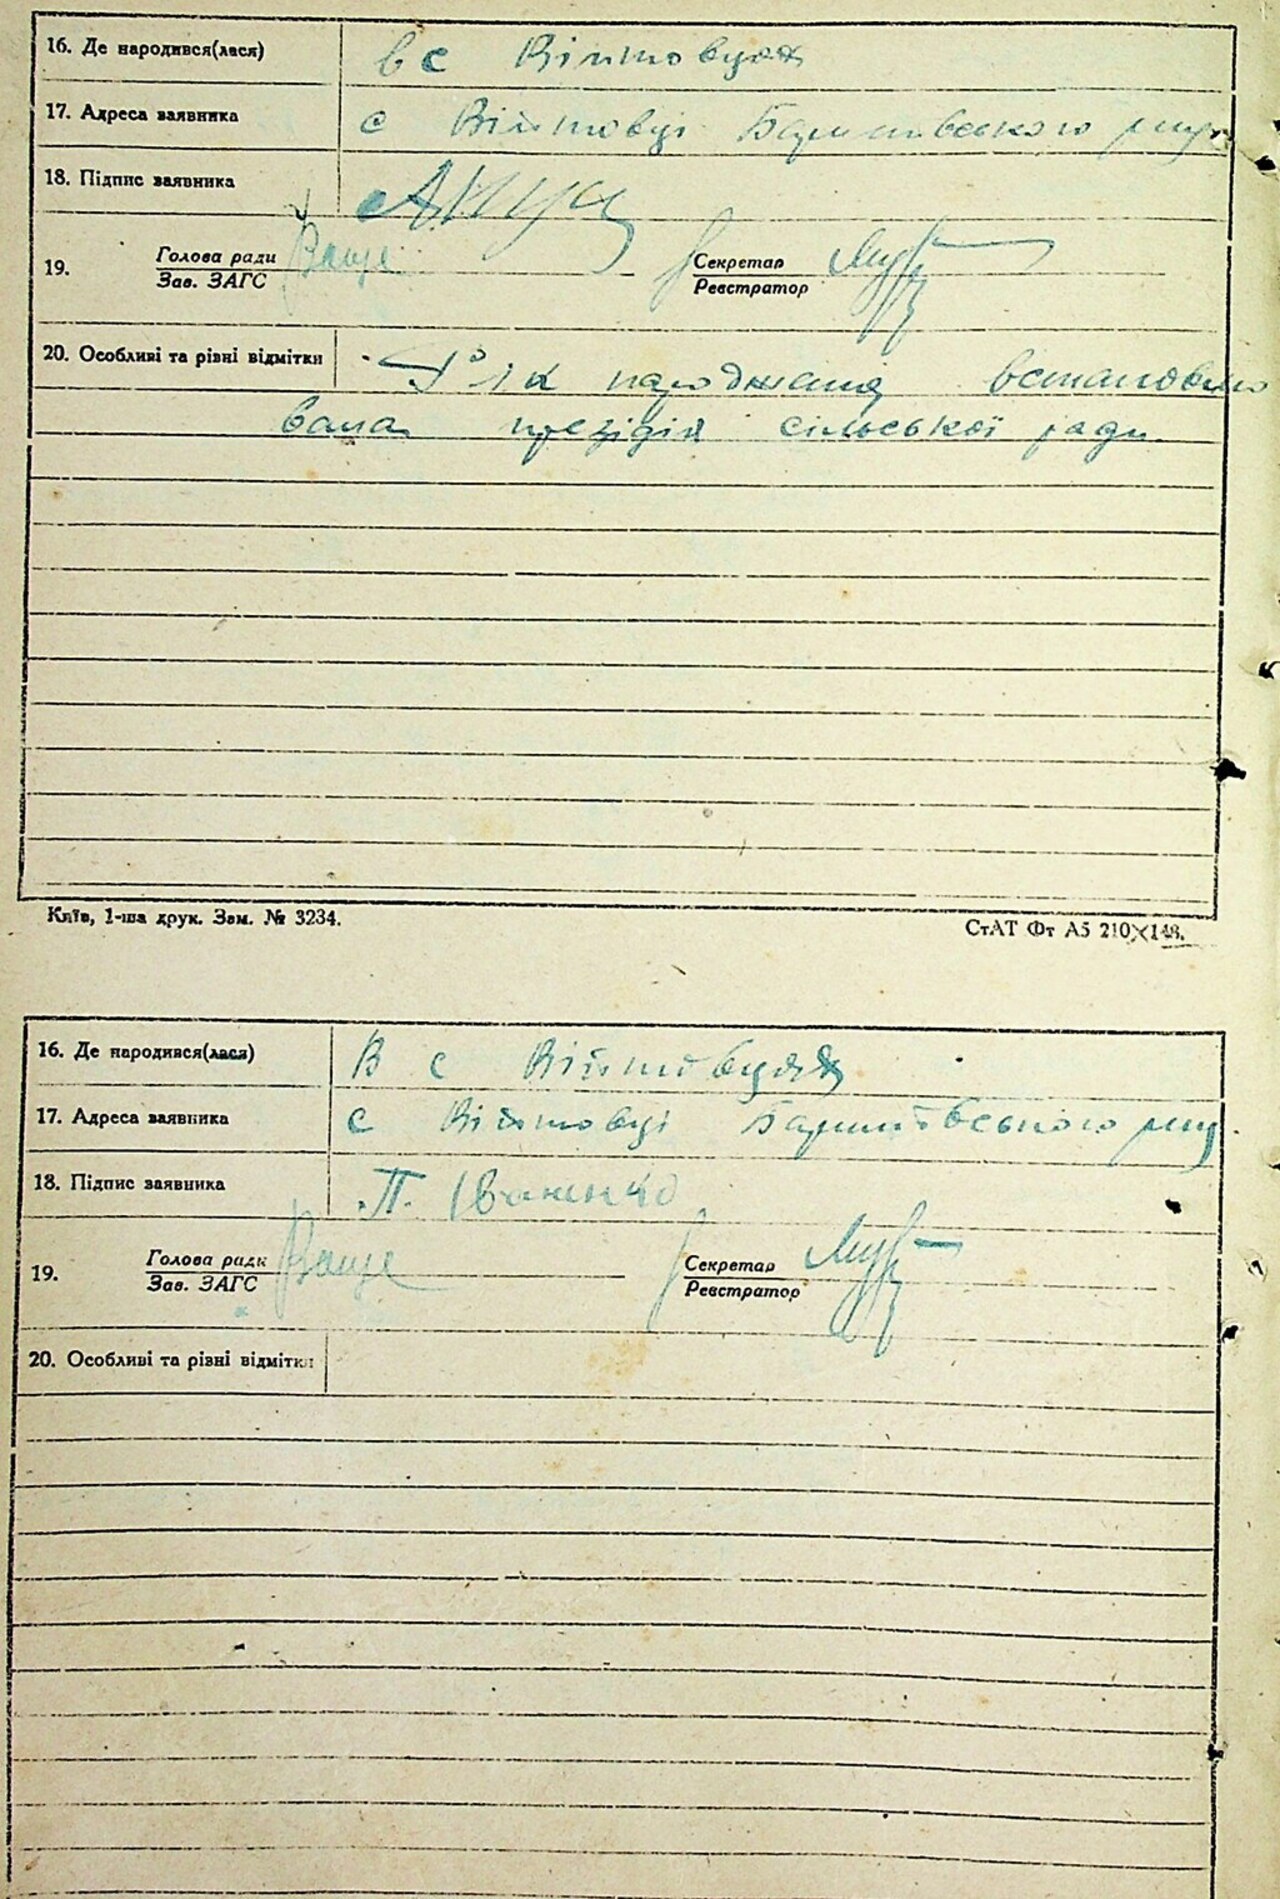 16. Де народився(лася) в с Війтовцях
17. Адреса заявника с Війтовці Баришівського
18. Підпис заявника
19. Голова ради Секретар
Зав. ЗАГС Реєстратор
20. Особливі та рівні відмітки Рік народження встановлю
вала презідія сільської ради
Київ, 1-ша друк. Зам. № 3234.
СтАТ Фт А5 210×148.
16. Де народився(лася) В с Війтовцях
17. Адреса заявника с Війтовці Баришівського
18. Підпис заявника П. Іваненко
19. Голова ради Секретар
Зав. ЗАГС Реєстратор
20. Особливі та рівні відмітки